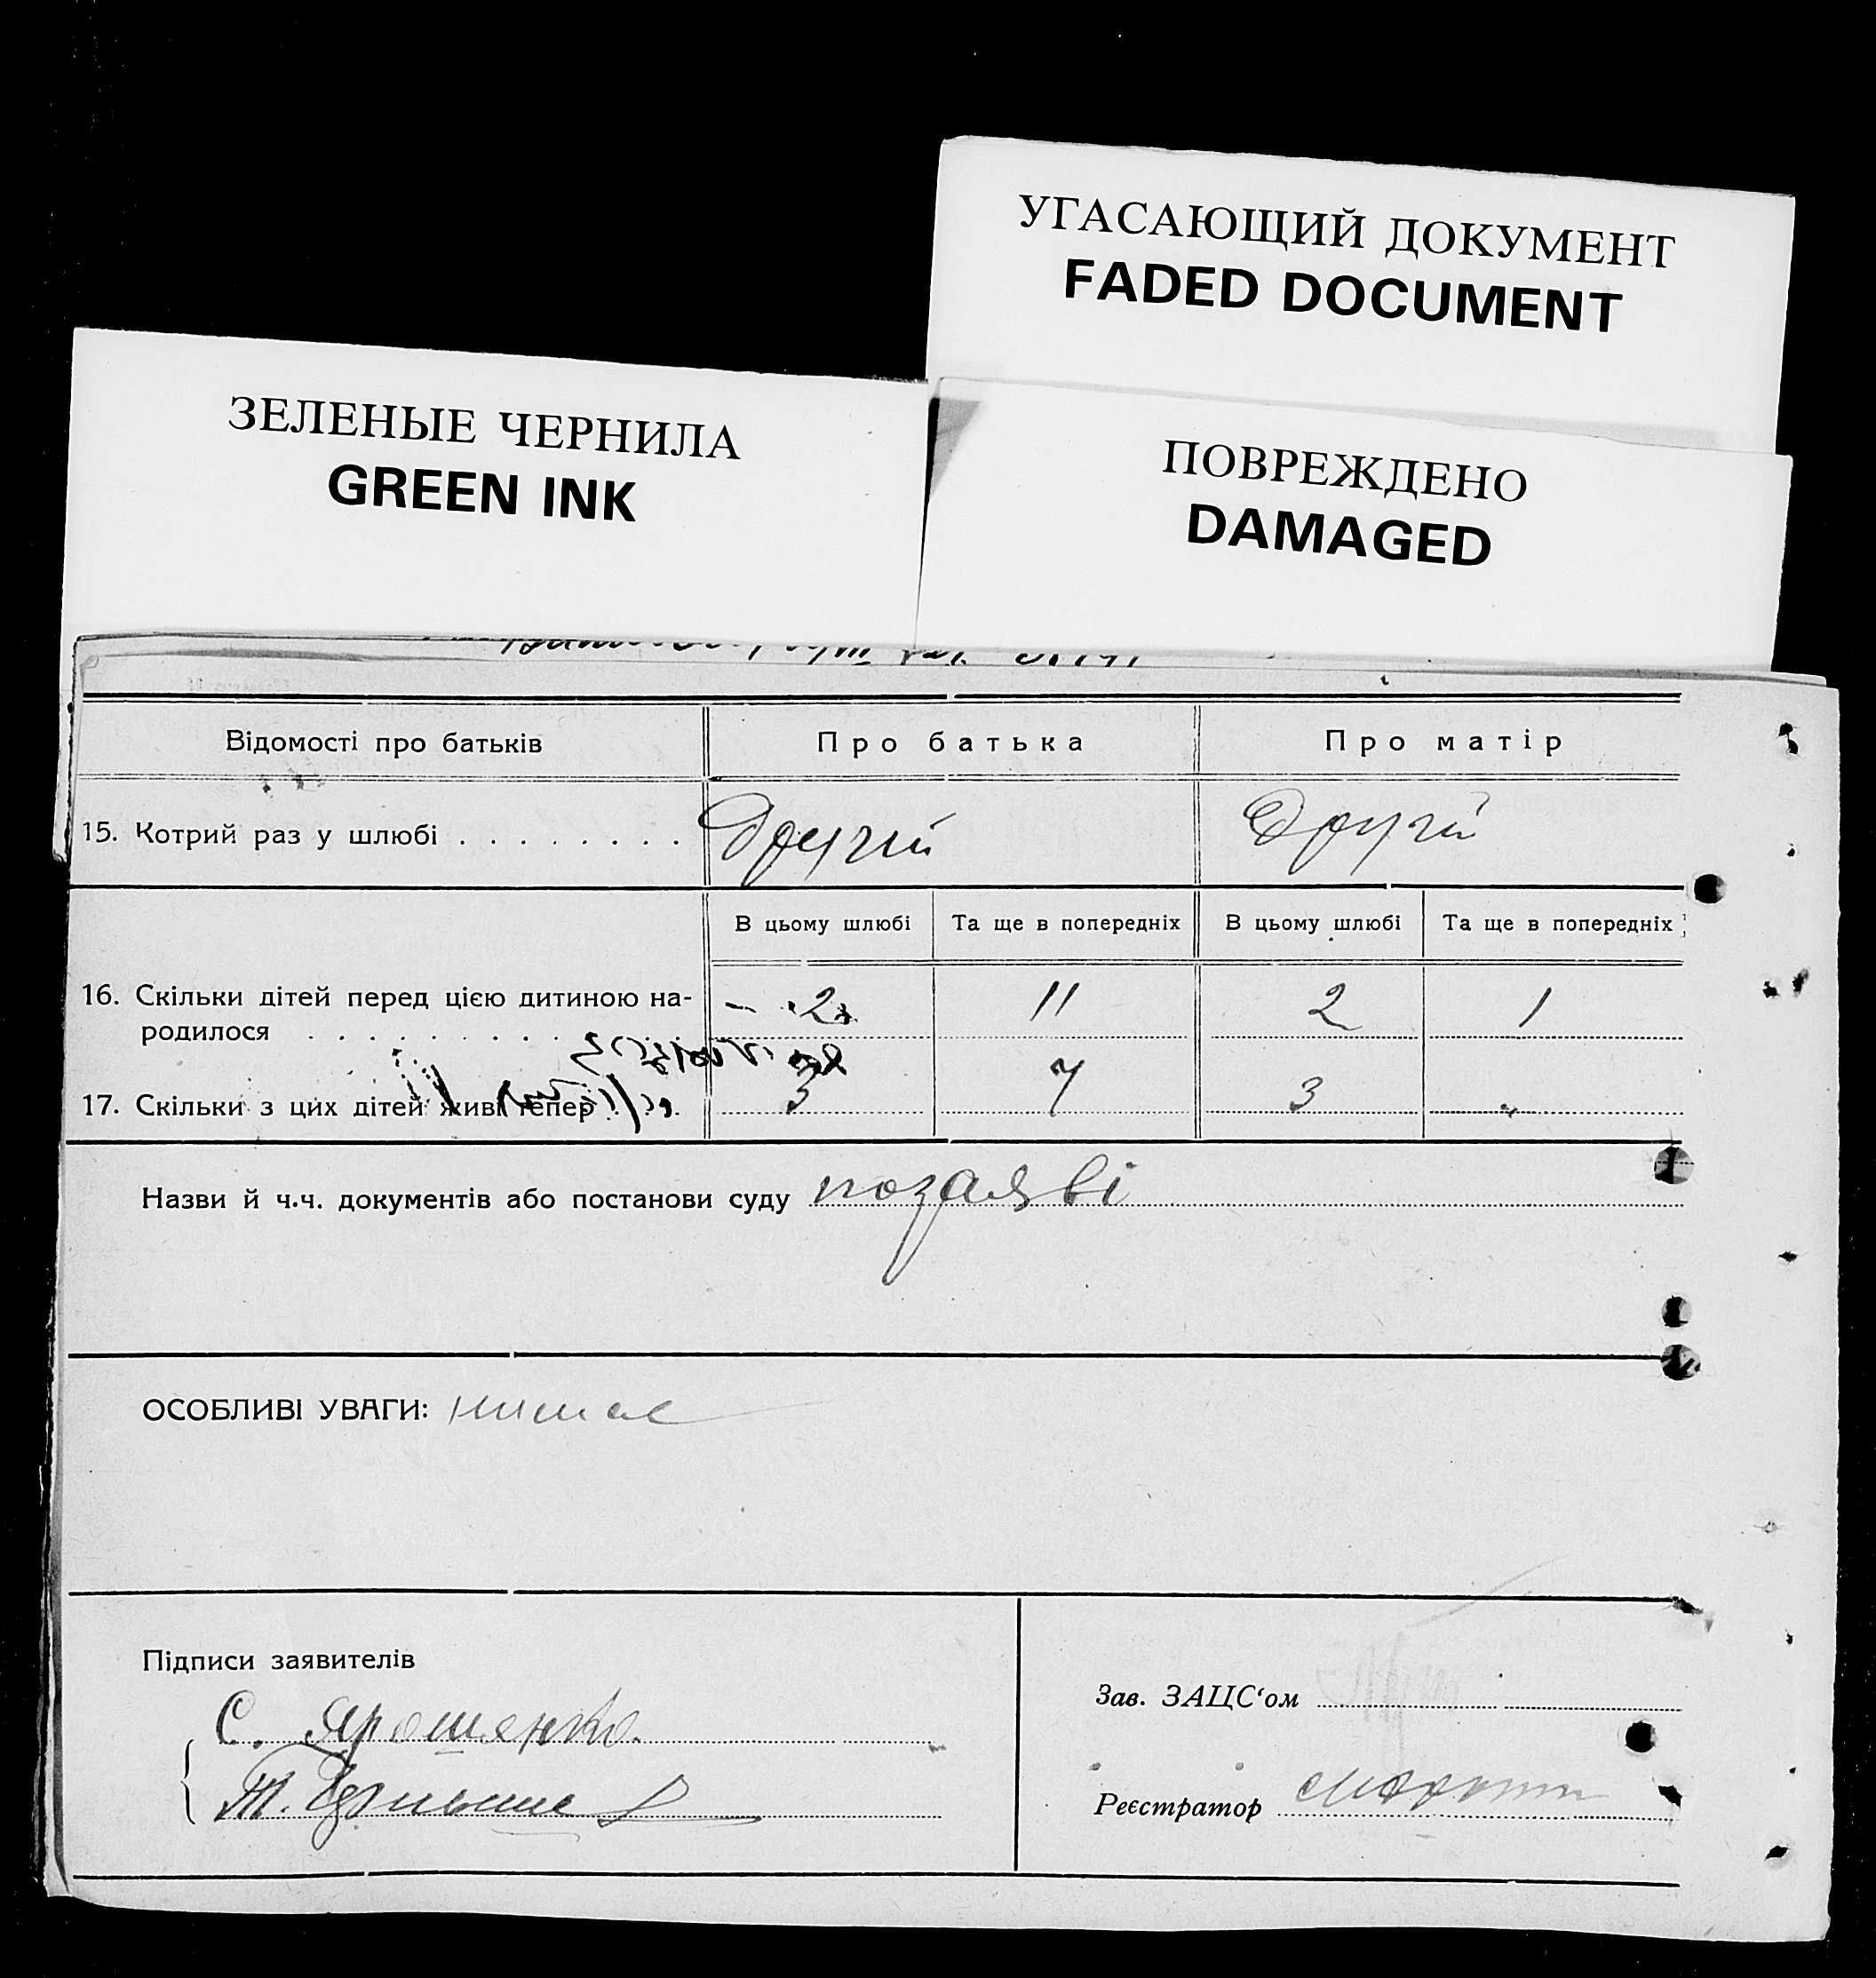 УГАСАЮЩИЙ ДОКУМЕНТ
FADED DOCUMENT
ЗЕЛЕНЫЕ ЧЕРНИЛА
GREEN INK
ПОВРЕЖДЕНО
DAMAGED
Відомості про батьків Про батька Про матір
15. Котрий раз у шлюбі . . . . . . . . Другий Другий
В цьому шлюбі Та ще в попередніх В цьому шлюбі Та ще в попередніх
16. Скільки дітей перед цією дитиною на- 2 11 2 1
родилося . . . . . . . . .
17. Скільки з цих дітей живі тепер . . . 3 7 3 "
Назви й ч.ч. документів або постанови суду по заяві
ОСОБЛИВІ УВАГИ:
Підписи заявителів
С. Ярошенко.
Зав. ЗАЦС'ом
Т.
Реєстратор